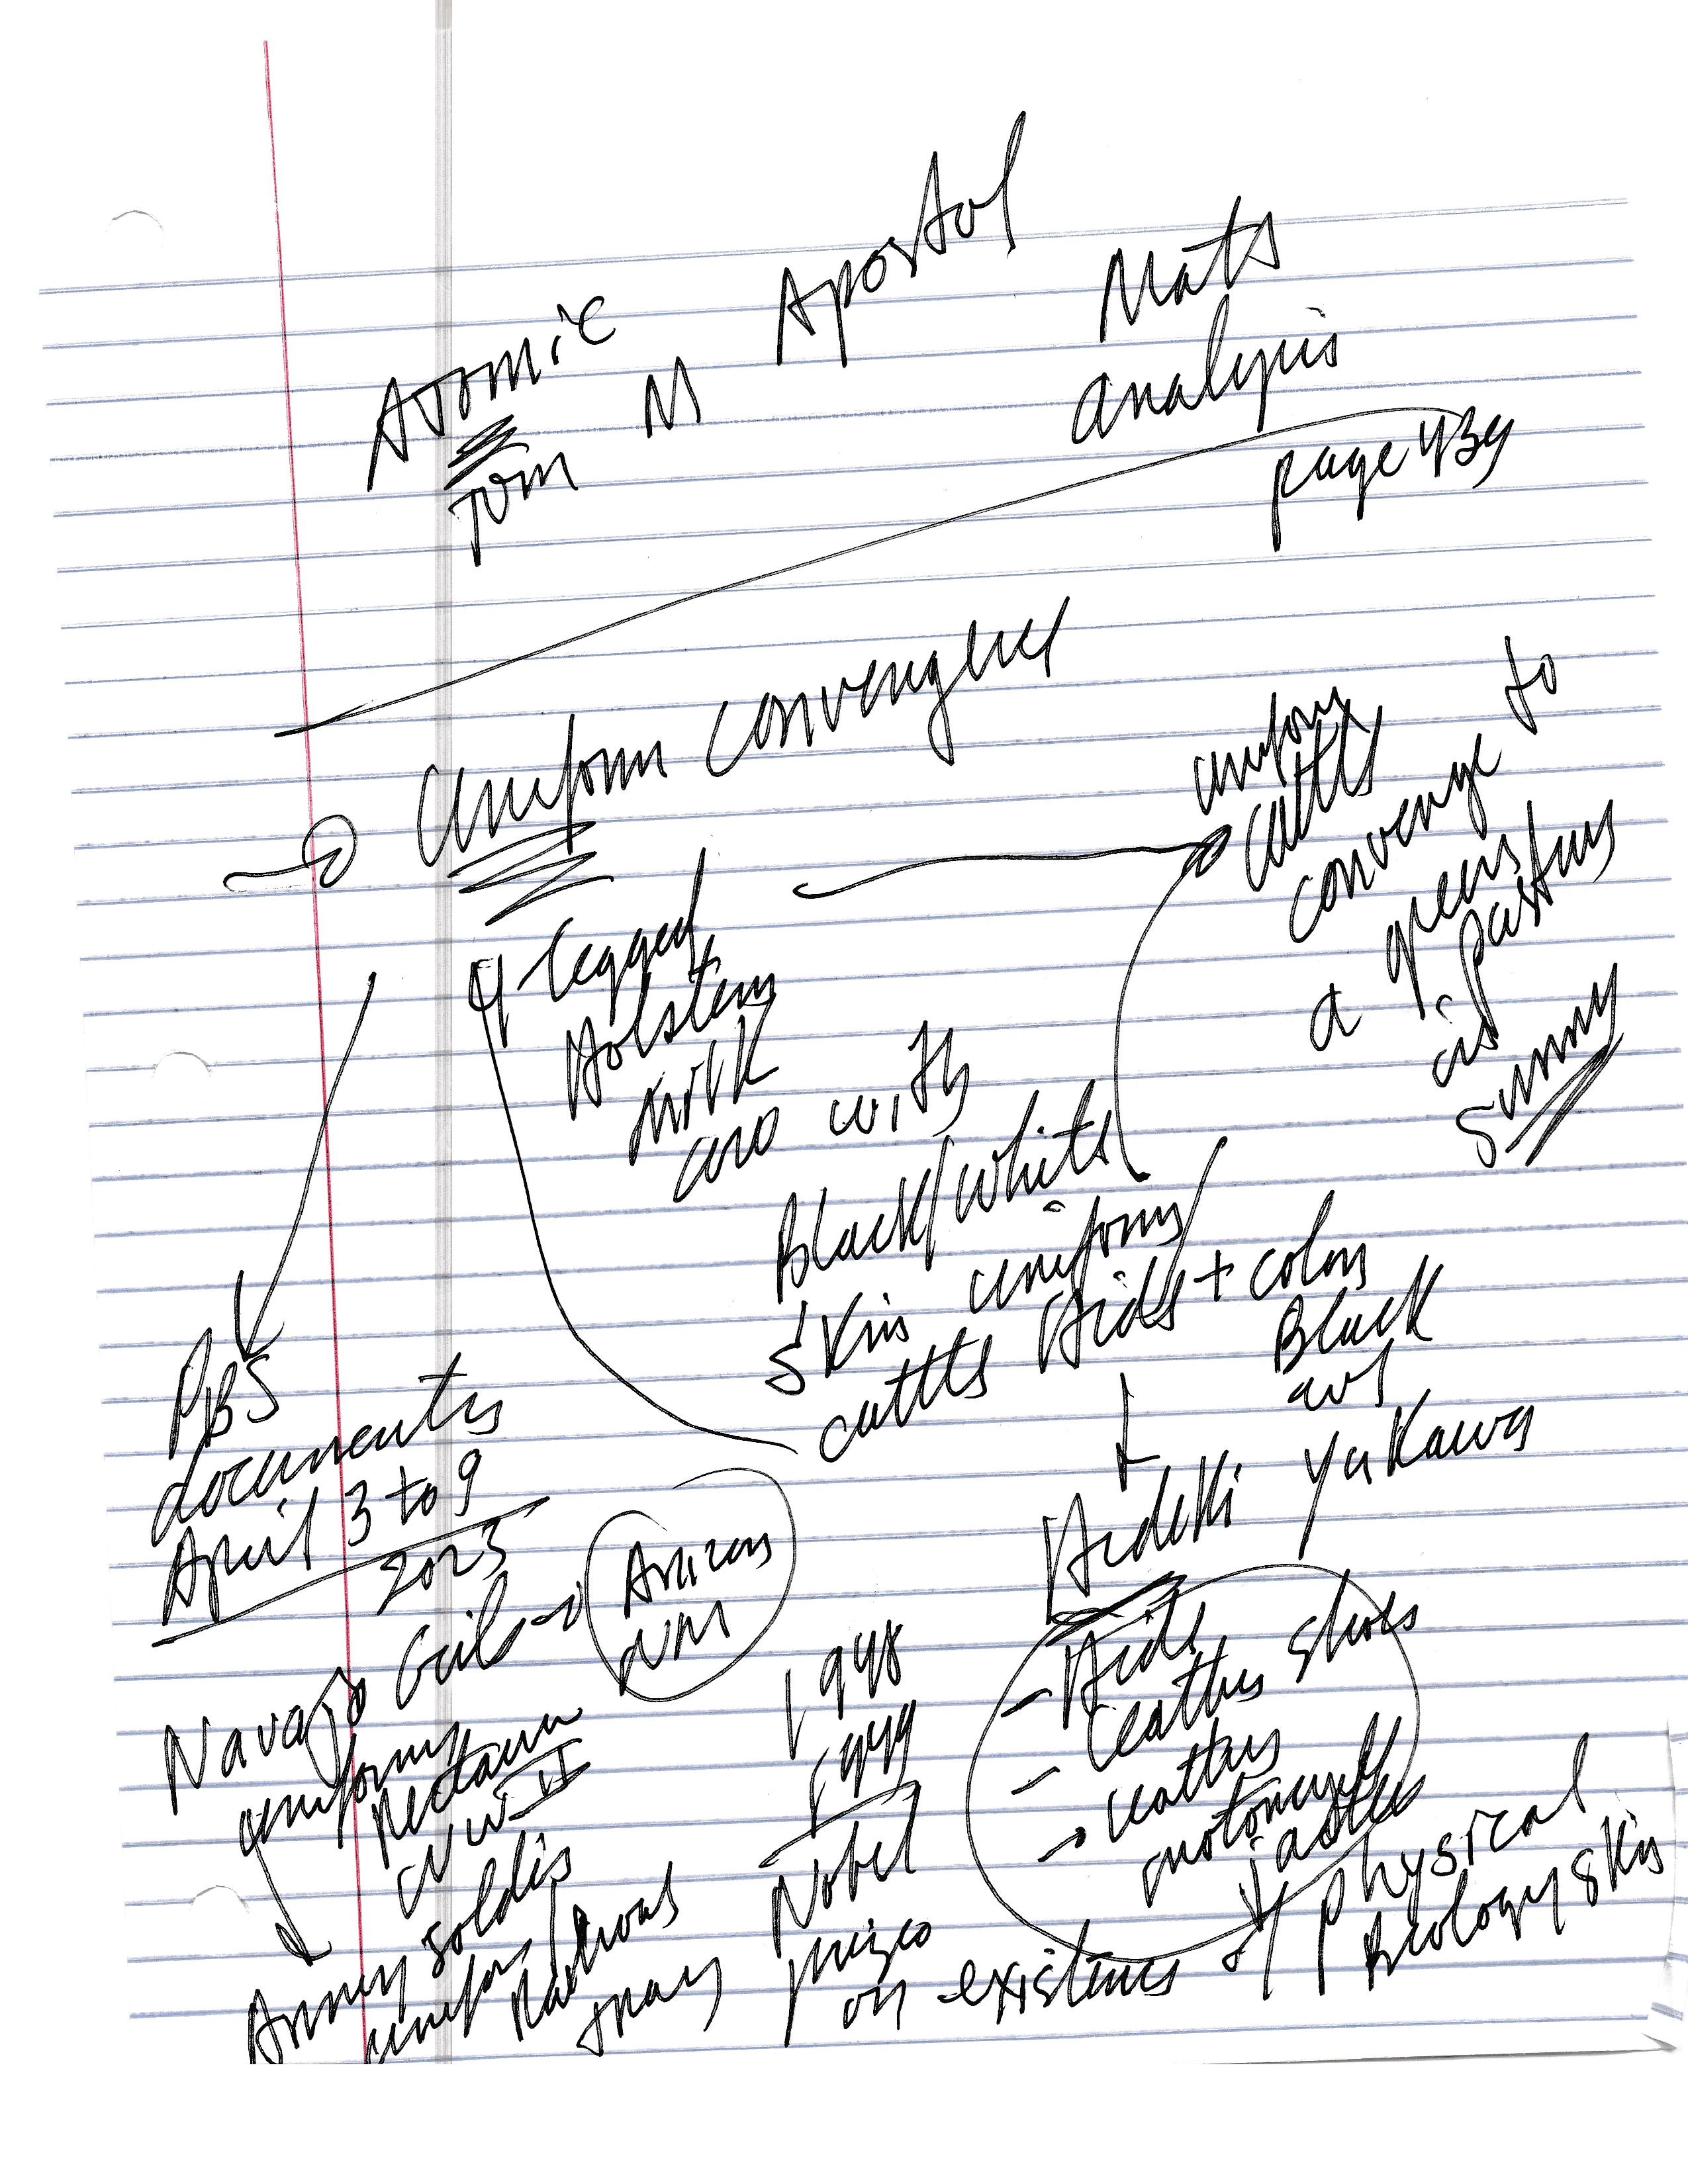 Atomic
Tom M Apostol
Math
analysis
page 439
Uniform convergence
uniform
cattle
converge to
a green
pasture
is
sunny
4-legged
Holstein
milk
cow with
Black/white
skin uniforms
cattle Hide + colors
Black
and
Hideki Yukawa
- Hide
- leather shoes
→ leather
motorcycle
jacket
PBS
documentary
April 3 to 9
2023
Navajo Girls → Arizona
NM
uniforms
WW II
Army soldiers
uniform
National
1948
1949
Nobel
prize
on existence of physical
Biology skin